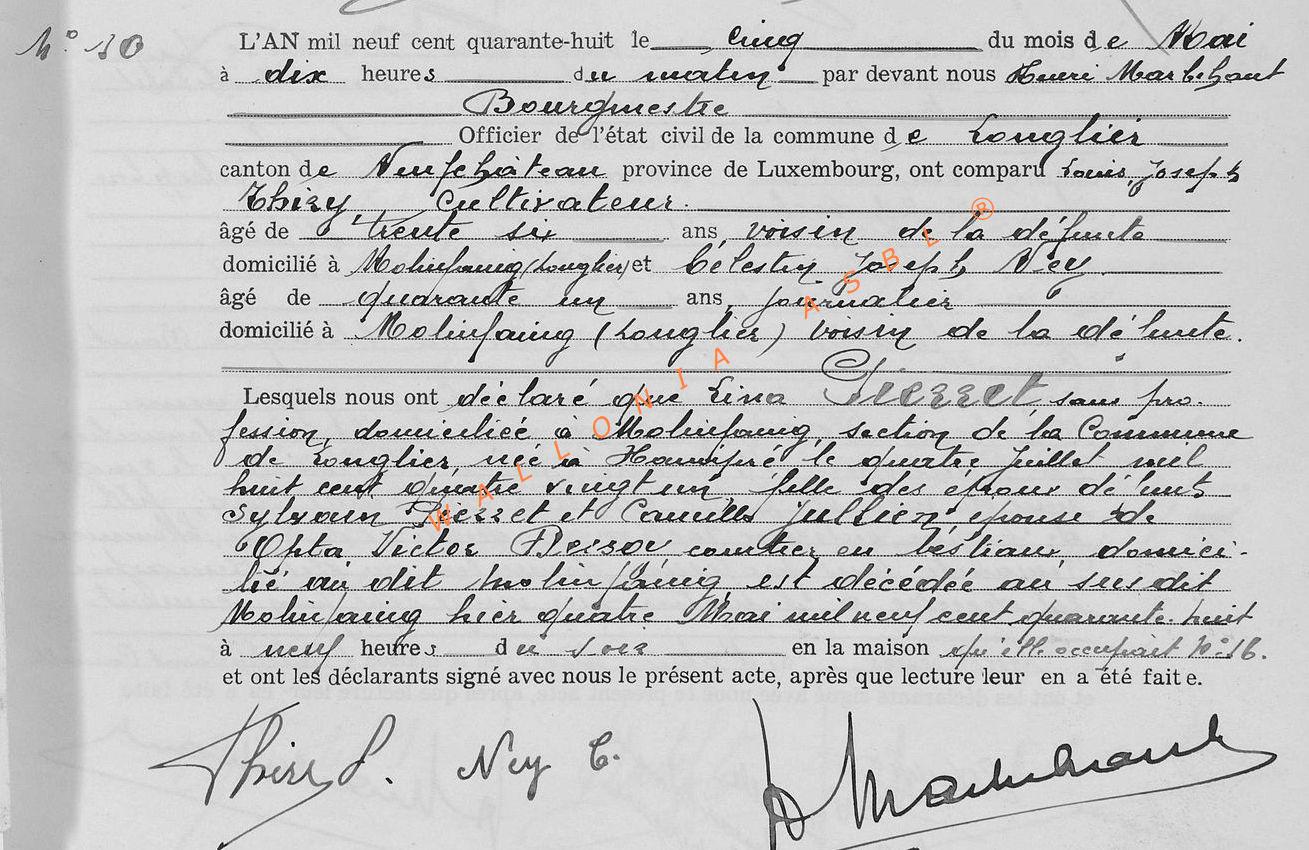 N° 10
L'AN mil neuf cent quarante-huit le cinq du mois de Mai
à dix heures du matin par devant nous Henri Marlchant
Bourgmestre
Officier de l'état civil de la commune de Longlier
canton de Neufchâteau province de Luxembourg, ont comparu Louis, Joseph
Thiry, Cultivateur.
âgé de trente six ans, voisin de la défunte
domicilié à Molinfaing (Longlier) et Célestin Joseph Ney
âgé de quarante un ans, journalier
domicilié à Molinfaing (Longlier) voisin de la défunte.
Lesquels nous ont déclaré que Lina Pierret sans pro-
fession, domiciliée à Molinfaing, section de la Commune
de Longlier, née à Hamipré le quatre juillet mil
huit cent quatre vingt un, fille des époux défunts
Sylvain Pierret et Camille Jullien, épouse de
Victor courtier en bestiaux domici-
lié au dit Molinfaing est décédée au susdit
Molinfaing hier quatre Mai mil neuf cent quarante-huit
à neuf heures du soir en la maison qu'elle occupait N° 16.
et ont les déclarants signé avec nous le présent acte, après que lecture leur en a été faite.
Thiry L. Ney C.
WALLONIA ASBL ®